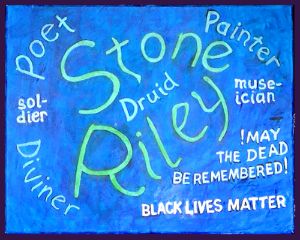 Poet
Painter
Stone
sol-
dier
Druid
muse-
ician
Riley
Diviner
!MAY
THE DEAD
BE REMEMBERED!
BLACK LIVES MATTER